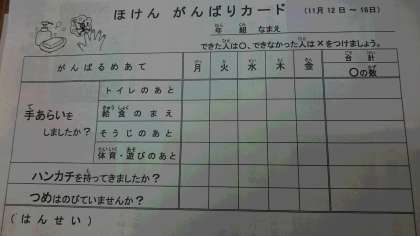 ほけん がんばりカード (11月12日~16日)
年 組 なまえ
できた人は○、できなかった人は×をつけましょう。
がんばるめあて 月 火 水 木 金 合計 ○の数
手あらいをしましたか?
トイレのあと
給食のまえ
そうじのあと
体育・遊びのあと
ハンカチを持ってきましたか?
つめはのびていませんか?
(はんせい)